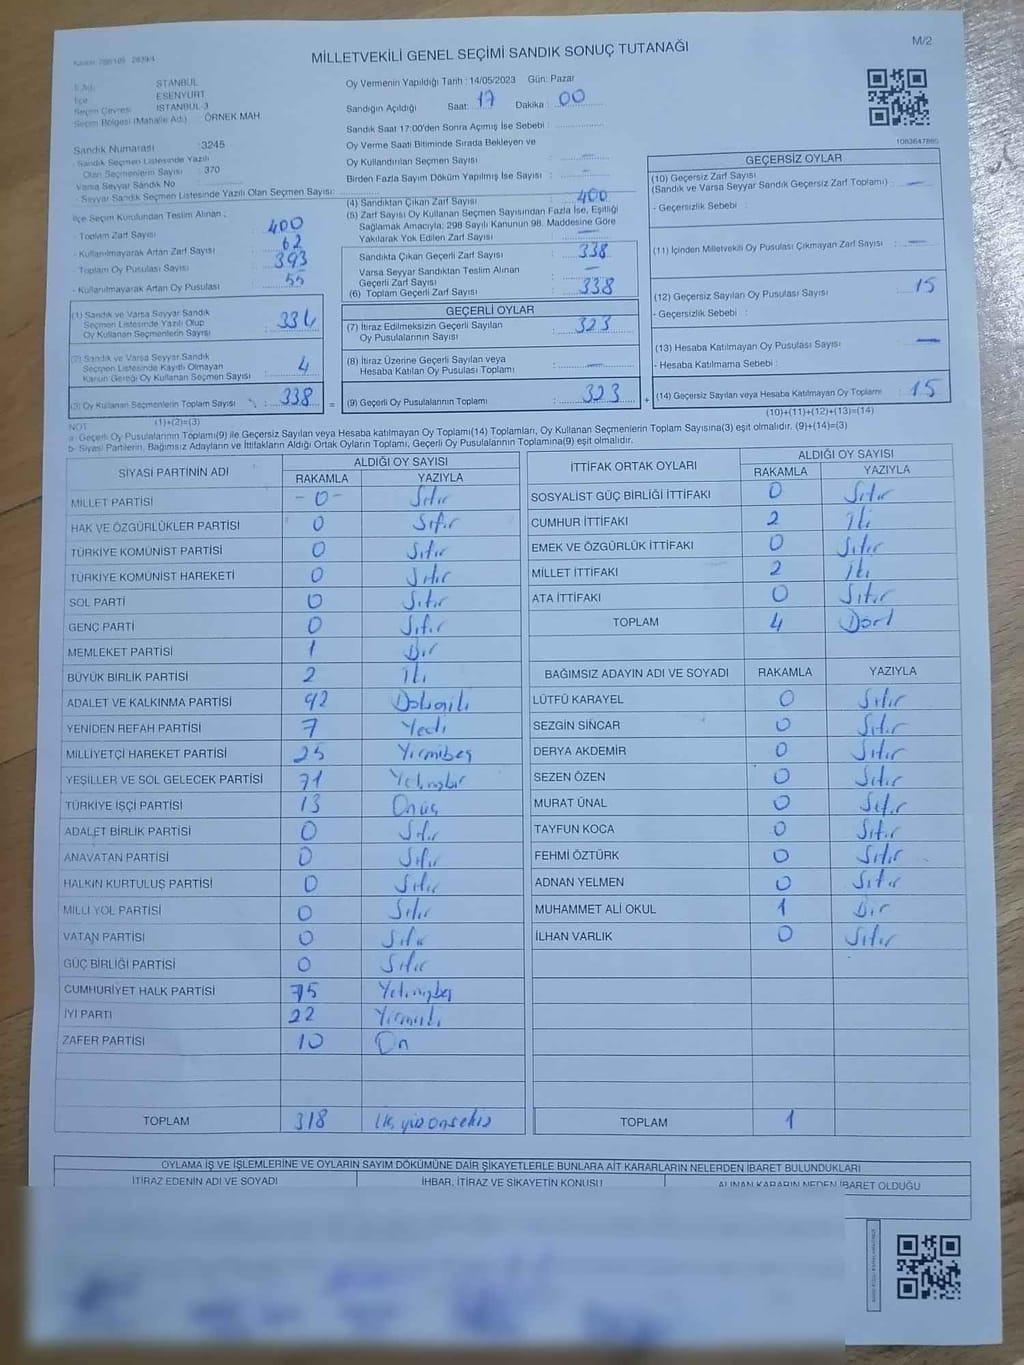 MİLLETVEKİLİ GENEL SEÇİMİ SANDIK SONUÇ TUTANAĞI
M/2
İSTANBUL
İlçe ESENYURT
Seçim Çevresi İSTANBUL-3
Seçim Bölgesi (Mahalle Adı) : ÖRNEK MAH.
Sandık Numarası : 3245
- Sandık Seçmen Listesinde Yazılı
Olan Seçmenlerin Sayısı : 370
Varsa Seyyar Sandık No
- Seyyar Sandık Seçmen Listesinde Yazılı Olan Seçmen Sayısı:
Oy Vermenin Yapıldığı Tarih : 14/05/2023 Gün: Pazar
Sandığın Açıldığı Saat: 17 Dakika : 00
Sandık Saat 17:00'den Sonra Açımış İse Sebebi :
Oy Verme Saati Bitiminde Sırada Bekleyen ve
Oy Kullandırılan Seçmen Sayısı : —
Birden Fazla Sayım Döküm Yapılmış İse Sayısı : —
1083647865
İlçe Seçim Kurulundan Teslim Alınan ;
- Toplam Zarf Sayısı : 400
- Kullanılmayarak Artan Zarf Sayısı : 62
- Toplam Oy Pusulası Sayısı : 393
- Kullanılmayarak Artan Oy Pusulası : 55
(1) Sandık ve Varsa Seyyar Sandık
Seçmen Listesinde Yazılı Olup
Oy Kullanan Seçmenlerin Sayısı : 334
(2) Sandık ve Varsa Seyyar Sandık
Seçmen Listesinde Kayıtlı Olmayan
Kanun Gereği Oy Kullanan Seçmen Sayısı : 4
(3) Oy Kullanan Seçmenlerin Toplam Sayısı : 338 =
(1)+(2)=(3)
(4) Sandıktan Çıkan Zarf Sayısı : 400
(5) Zarf Sayısı Oy Kullanan Seçmen Sayısından Fazla İse, Eşitliği
Sağlamak Amacıyla: 298 Sayılı Kanunun 98. Maddesine Göre
Yakılarak Yok Edilen Zarf Sayısı : —
Sandıkta Çıkan Geçerli Zarf Sayısı : 338
Varsa Seyyar Sandıktan Teslim Alınan
Geçerli Zarf Sayısı : —
(6) Toplam Geçerli Zarf Sayısı : 338
GEÇERLİ OYLAR
(7) İtiraz Edilmeksizin Geçerli Sayılan
Oy Pusulalarının Sayısı : 323
(8) İtiraz Üzerine Geçerli Sayılan veya
Hesaba Katılan Oy Pusulası Toplamı : —
(9) Geçerli Oy Pusulalarının Toplamı : 323 +
GEÇERSİZ OYLAR
(10) Geçersiz Zarf Sayısı
(Sandık ve Varsa Seyyar Sandık Geçersiz Zarf Toplamı) : —
- Geçersizlik Sebebi :
(11) İçinden Milletvekili Oy Pusulası Çıkmayan Zarf Sayısı : —
(12) Geçersiz Sayılan Oy Pusulası Sayısı : 15
- Geçersizlik Sebebi :
(13) Hesaba Katılmayan Oy Pusulası Sayısı : —
- Hesaba Katılmama Sebebi :
(14) Geçersiz Sayılan veya Hesaba Katılmayan Oy Toplamı : 15
(10)+(11)+(12)+(13)=(14)
NOT
a- Geçerli Oy Pusulalarının Toplamı(9) ile Geçersiz Sayılan veya Hesaba katılmayan Oy Toplamı(14) Toplamları, Oy Kullanan Seçmenlerin Toplam Sayısına(3) eşit olmalıdır. (9)+(14)=(3)
b- Siyasi Partilerin, Bağımsız Adayların ve İttifakların Aldığı Ortak Oyların Toplamı, Geçerli Oy Pusulalarının Toplamına(9) eşit olmalıdır.
SİYASİ PARTİNİN ADI ALDIĞI OY SAYISI
RAKAMLA YAZIYLA
MİLLET PARTİSİ -0- Sıfır
HAK VE ÖZGÜRLÜKLER PARTİSİ 0 Sıfır
TÜRKİYE KOMÜNİST PARTİSİ 0 Sıfır
TÜRKİYE KOMÜNİST HAREKETİ 0 Sıfır
SOL PARTİ 0 Sıfır
GENÇ PARTİ 0 Sıfır
MEMLEKET PARTİSİ 1 Bir
BÜYÜK BİRLİK PARTİSİ 2 İki
ADALET VE KALKINMA PARTİSİ 92 Doksaniki
YENİDEN REFAH PARTİSİ 7 Yedi
MİLLİYETÇİ HAREKET PARTİSİ 25 Yirmibeş
YEŞİLLER VE SOL GELECEK PARTİSİ 71 Yetmişbir
TÜRKİYE İŞÇİ PARTİSİ 13 Onüç
ADALET BİRLİK PARTİSİ 0 Sıfır
ANAVATAN PARTİSİ 0 Sıfır
HALKIN KURTULUŞ PARTİSİ 0 Sıfır
MİLLİ YOL PARTİSİ 0 Sıfır
VATAN PARTİSİ 0 Sıfır
GÜÇ BİRLİĞİ PARTİSİ 0 Sıfır
CUMHURİYET HALK PARTİSİ 75 Yetmişbeş
İYİ PARTİ 22 Yirmiiki
ZAFER PARTİSİ 10 On
TOPLAM 318 Üçyüzonsekiz
İTTİFAK ORTAK OYLARI ALDIĞI OY SAYISI
RAKAMLA YAZIYLA
SOSYALİST GÜÇ BİRLİĞİ İTTİFAKI 0 Sıfır
CUMHUR İTTİFAKI 2 İki
EMEK VE ÖZGÜRLÜK İTTİFAKI 0 Sıfır
MİLLET İTTİFAKI 2 İki
ATA İTTİFAKI 0 Sıfır
TOPLAM 4 Dört
BAĞIMSIZ ADAYIN ADI VE SOYADI RAKAMLA YAZIYLA
LÜTFÜ KARAYEL 0 Sıfır
SEZGİN SİNCAR 0 Sıfır
DERYA AKDEMİR 0 Sıfır
SEZEN ÖZEN 0 Sıfır
MURAT ÜNAL 0 Sıfır
TAYFUN KOCA 0 Sıfır
FEHMİ ÖZTÜRK 0 Sıfır
ADNAN YELMEN 0 Sıfır
MUHAMMET ALİ OKUL 1 Bir
İLHAN VARLIK 0 Sıfır
TOPLAM 1
OYLAMA İŞ VE İŞLEMLERİNE VE OYLARIN SAYIM DÖKÜMÜNE DAİR ŞİKAYETLERLE BUNLARA AİT KARARLARIN NELERDEN İBARET BULUNDUKLARI
İTİRAZ EDENİN ADI VE SOYADI İHBAR, İTİRAZ VE ŞİKAYETİN KONUSU ALINAN KARARIN NEDEN İBARET OLDUĞU